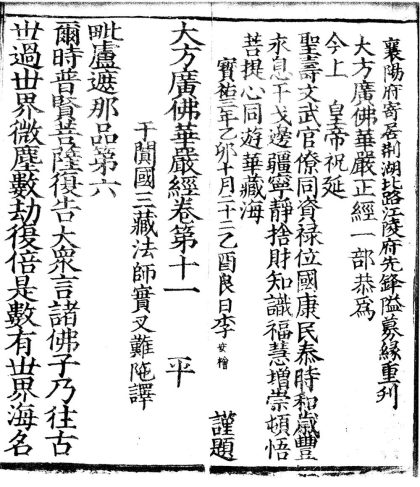 襄陽府寄居荆湖北路江陵府先鋒隘募緣重刋
大方廣佛華嚴正經一部恭爲
今上　皇帝祝延
聖壽文武官僚同資禄位國康民泰時和歲豐
永息干戈邊疆寧靜捨財知識福慧增崇頓悟
菩提心同遊華藏海
寶祐三年乙卯十月二十三乙酉良日李安檜　謹題
大方廣佛華嚴經卷第十一　平
于闐國三藏法師實叉難陁譯
毗盧遮那品第六
爾時普賢菩薩復告大衆言諸佛子乃往古
世過世界微塵數劫復倍是數有世界海名